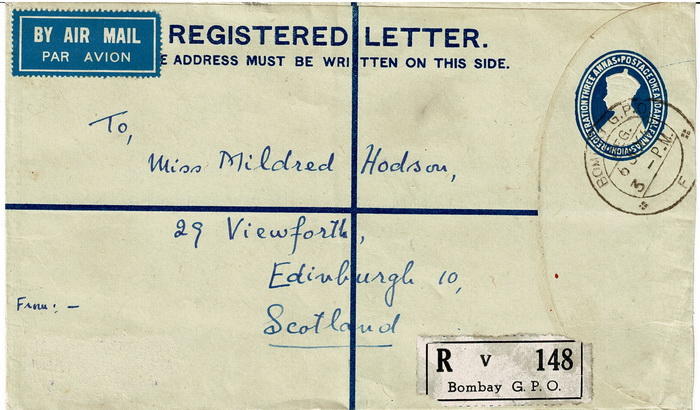 BY AIR MAIL
PAR AVION
REGISTERED LETTER.
E ADDRESS MUST BE WRITTEN ON THIS SIDE.
REGISTRATION THREE ANNAS • POSTAGE ONE AND A HALF ANNAS
INDIA
G.P.O.
3 - P.M.
To,
Miss Mildred Hodson,
29 Viewforth,
Edinburgh 10,
Scotland
From: -
R V 148
Bombay G. P. O.